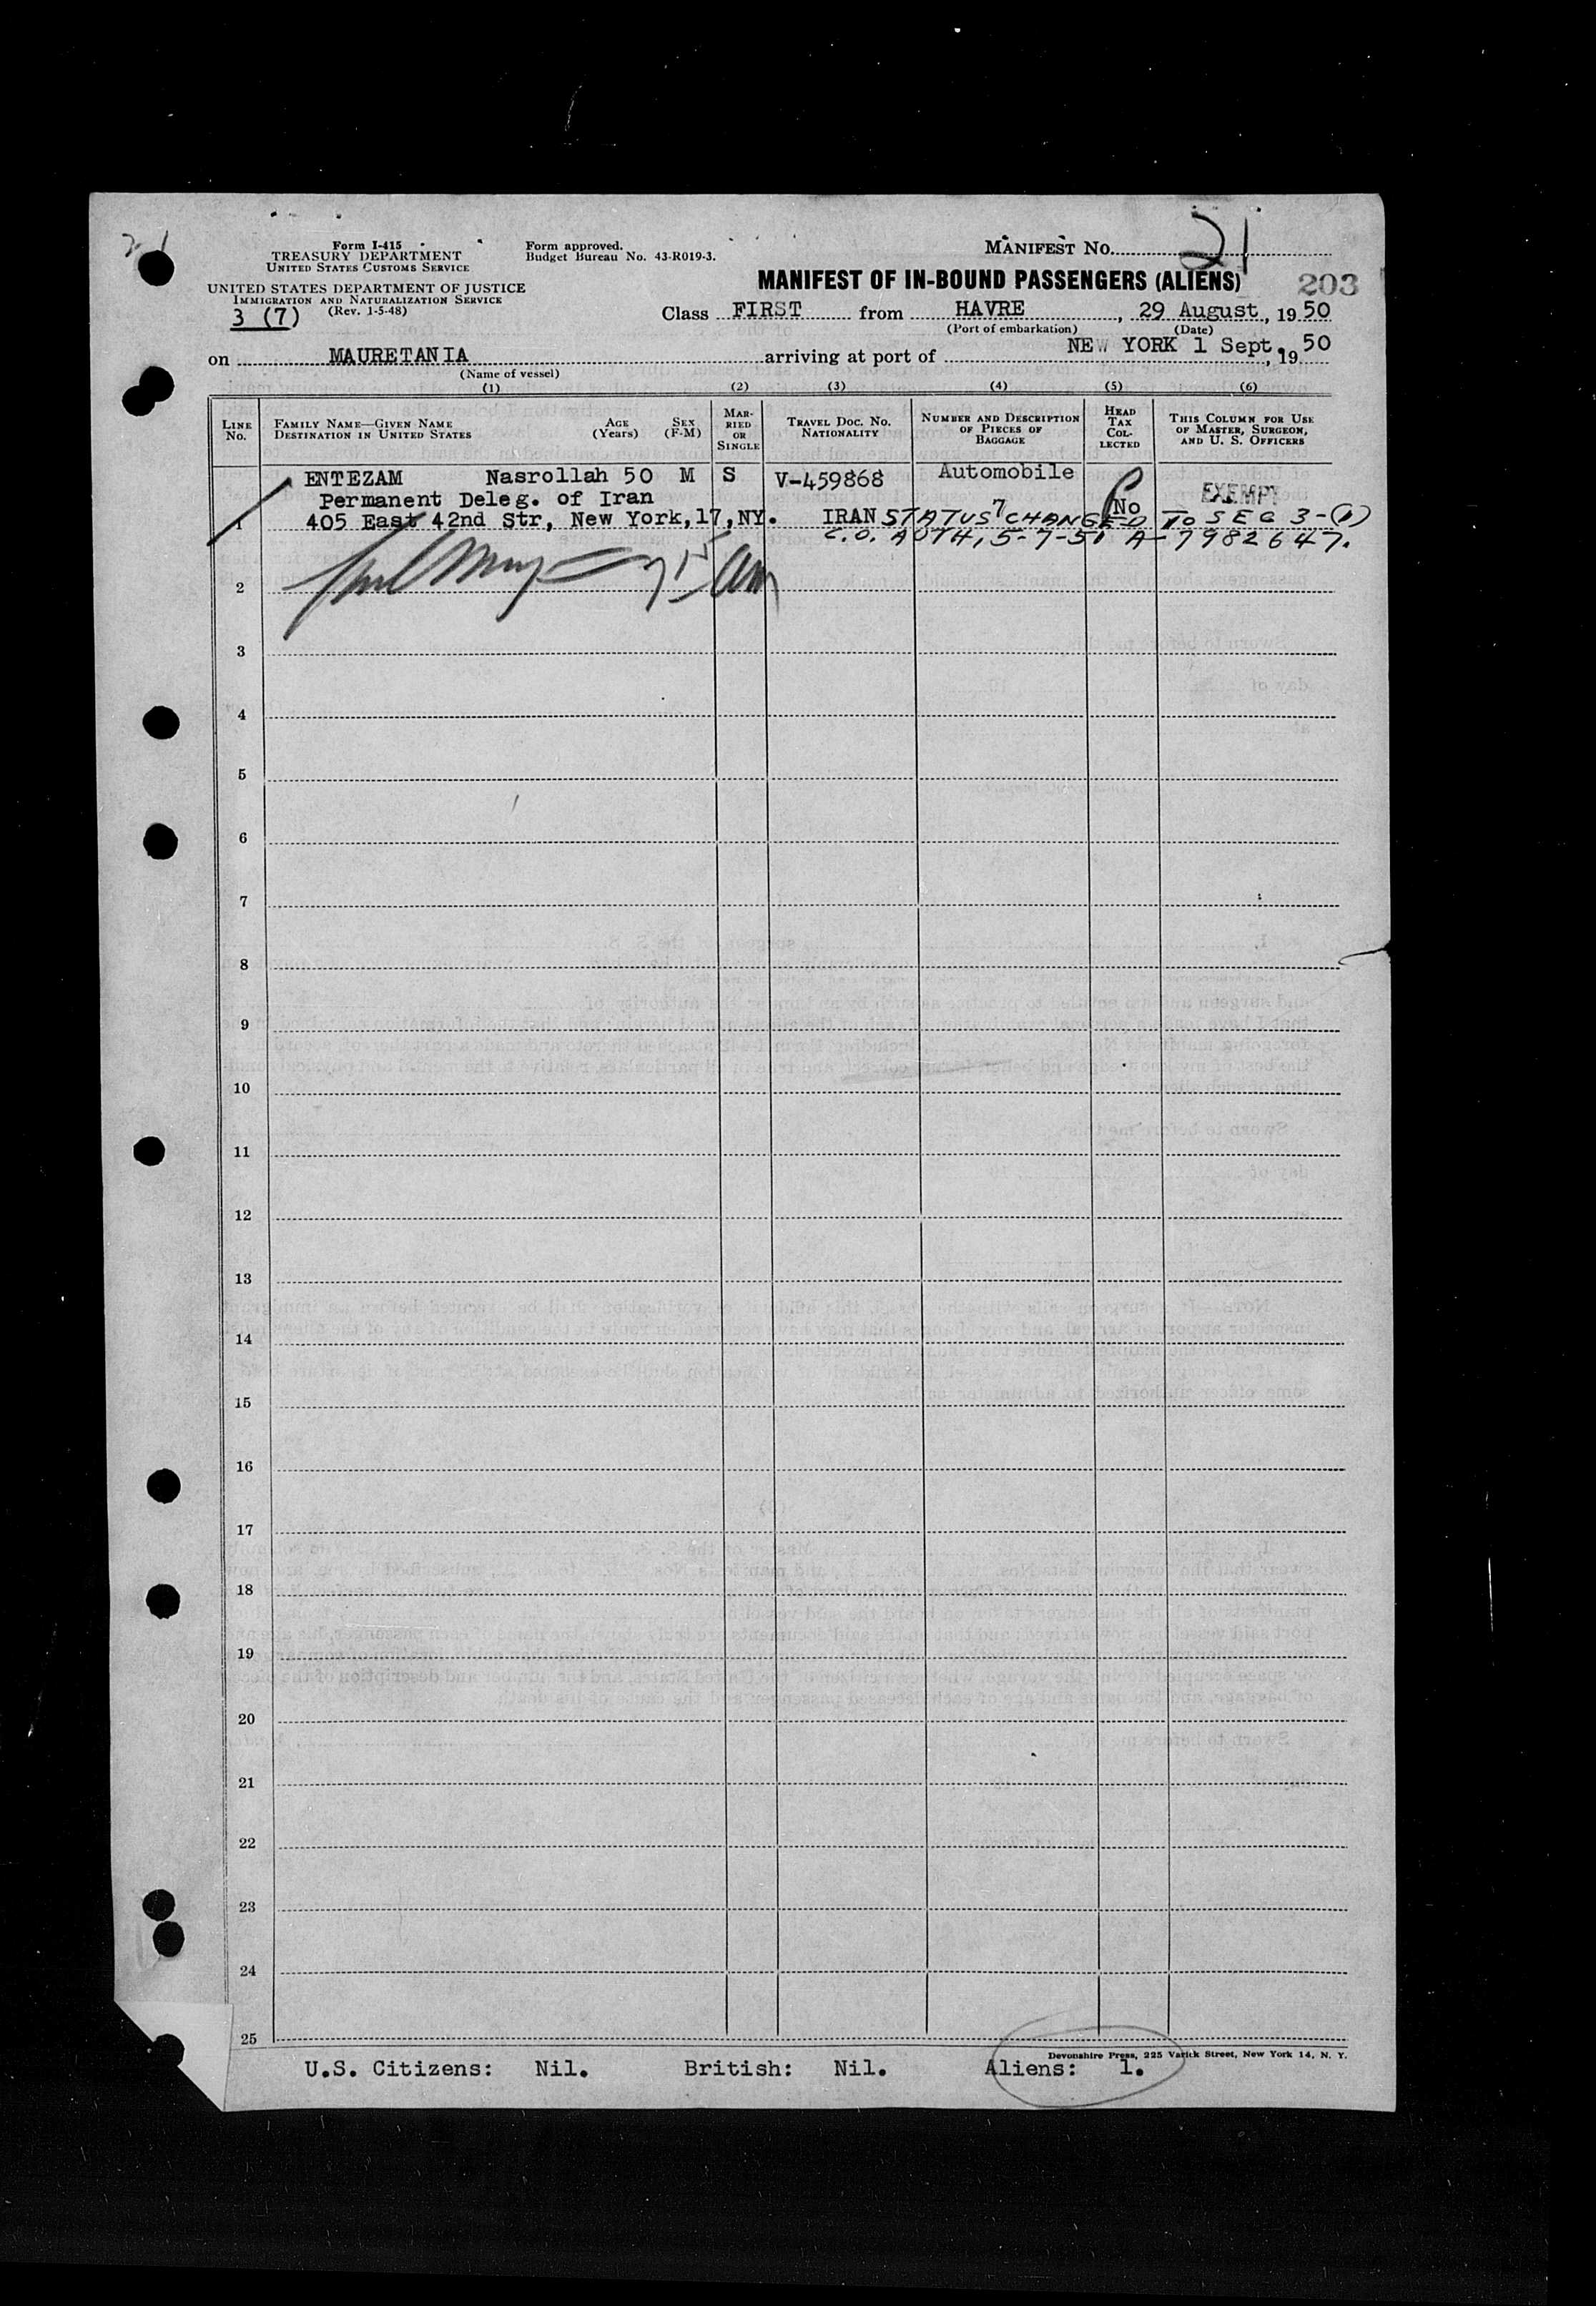 21
Form I-415
TREASURY DEPARTMENT
UNITED STATES CUSTOMS SERVICE
UNITED STATES DEPARTMENT OF JUSTICE
IMMIGRATION AND NATURALIZATION SERVICE
(Rev. 1-5-48)
3 (7)
Form approved.
Budget Bureau No. 43-R019-3.
MANIFEST No. 21
MANIFEST OF IN-BOUND PASSENGERS (ALIENS) 203
Class FIRST from HAVRE, 29 August, 1950
(Port of embarkation) (Date)
on MAURETANIA arriving at port of NEW YORK 1 Sept, 1950
(Name of vessel)
(1) (2) (3) (4) (5) (6)
LINE No.
FAMILY NAME—GIVEN NAME
DESTINATION IN UNITED STATES
AGE (Years)
SEX (F-M)
MARRIED OR SINGLE
TRAVEL DOC. No. NATIONALITY
NUMBER AND DESCRIPTION OF PIECES OF BAGGAGE
HEAD TAX COLLECTED
THIS COLUMN FOR USE OF MASTER, SURGEON, AND U. S. OFFICERS
ENTEZAM Nasrollah 50 M S V-459868 Automobile EXEMPT
Permanent Deleg. of Iran 7 No
1 405 East 42nd Str, New York, 17, NY. IRAN STATUS CHANGED TO SEC 3-(1)
C.O. AUTH, 5-7-51 A-7982647.
2
3
4
5
6
7
8
9
10
11
12
13
14
15
16
17
18
19
20
21
22
23
24
25
Devonshire Press, 225 Varick Street, New York 14, N. Y.
U.S. Citizens: Nil. British: Nil. Aliens: 1.